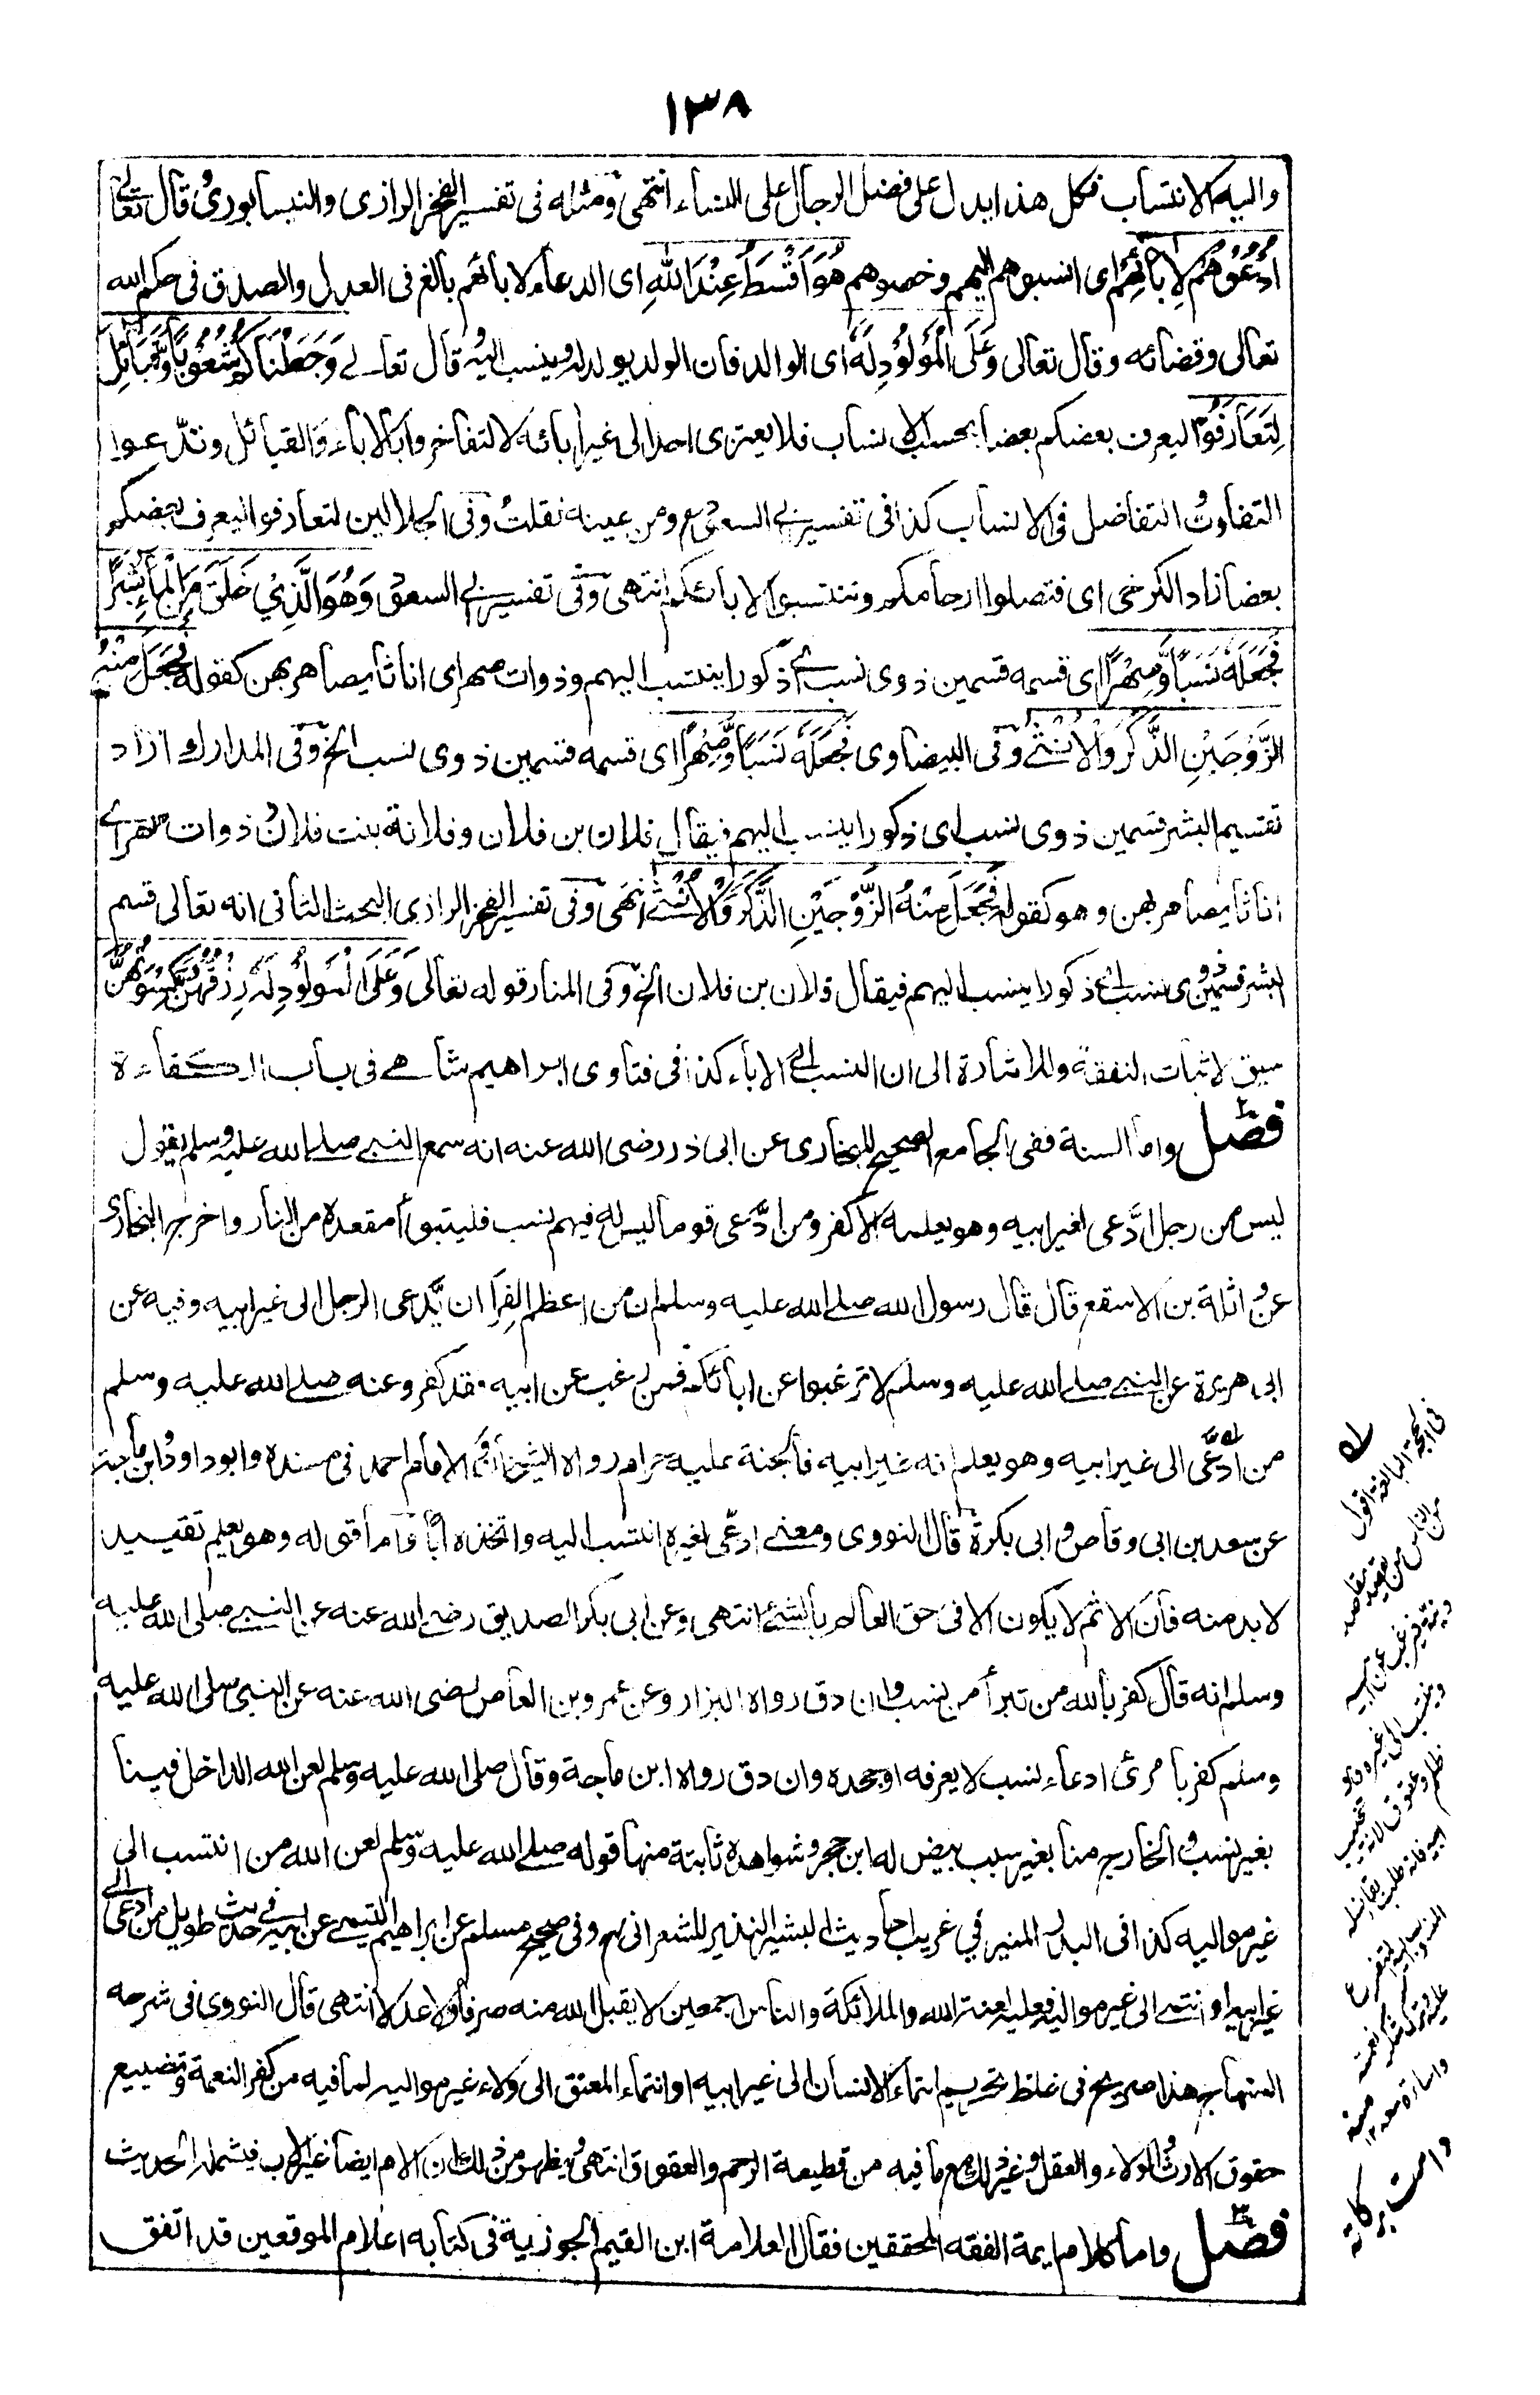 ١٣٨
واليه الانتساب فكل هذا يدل على فضل الرجال على النساء انتهى ومثله فى تفسير الفخر الرازى والنيسابورى وقال تعالى
اُدْعُوْهُمْ لِاٰبَآئِهِمْ اى انسبوهم اليهم وخصوهم هُوَ اَقْسَطُ عِنْدَ اللّٰهِ اى الدعاء لابائهم بالغ فى العدل والصدق فى حكم الله
تعالى وقضائه وقال تعالى وَعَلَى الْمَوْلُوْدِ لَهٗ اى الوالد فان الولد يولد له وينسب اليه وقال تعالے وَجَعَلْنَاكُمْ شُعُوْبًا وَّقَبَآئِلَ
لِتَعَارَفُوْا ليعرف بعضكم بعضا بحسب الانساب فلا يعتزى احد الى غير ابائه لا لتفاخروا بالاباء والقبائل وتدّعوا
التفاوت والتفاضل فى الانساب كذا فى تفسير ابى السعود ومن عينه نقلت وفى الجلالين لتعارفوا ليعرف بعضكم
بعضا زاد الكرخى اى فتصلوا ارحامكم وتنتسبوا لابائكم انتهى وفى تفسير ابى السعود وَهُوَ الَّذِيْ خَلَقَ مِنَ الْمَآءِ بَشَرًا
فَجَعَلَهٗ نَسَبًا وَّصِهْرًا اى قسمه قسمين ذوى نسب اى ذكورا ينتسب اليهم وذوات صهر اى اناثا يصاهر بهن كقوله فَجَعَلَ مِنْهُ
الزَّوْجَيْنِ الذَّكَرَ وَالْاُنْثٰے وفى البيضاوى فَجَعَلَهٗ نَسَبًا وَّصِهْرًا اى قسمه قسمين ذوى نسب الخ وفى المدارك اراد
تقسيم البشر قسمين ذوى نسب اى ذكورا ينسب اليهم فيقال فلان بن فلان وفلانة بنت فلان وذوات صهر اے
اناثا يصاهر بهن وهو كقوله فَجَعَلَ مِنْهُ الزَّوْجَيْنِ الذَّكَرَ وَالْاُنْثٰے انتهى وفى تفسير الفخر الرازى البحث الثانى انه تعالى قسم
البشر قسمين ذوى نسب اى ذكورا ينسب اليهم فيقال فلان بن فلان الخ وفى المنار قوله تعالى وَعَلَى الْمَوْلُوْدِ لَهٗ رِزْقُهُنَّ وَكِسْوَتُهُنَّ
سيق لاثبات النفقة وللاشارة الى ان النسب الى الاباء كذا فى فتاوى ابراهيم شاهے فى باب الكفاءة
فصل واما السنة ففى الجامع الصحيح للبخارى عن ابى ذر رضى الله عنه انه سمع النبے صلے الله عليه وسلم يقول
ليس من رجل ادَّعى لغير ابيه وهو يعلمه الا كفر ومن ادَّعى قوما ليس له فيهم نسب فليتبوأ مقعده من النار واخرج البخارى
عن واثلة بن الاسقع قال قال رسول الله صلے الله عليه وسلم ان من اعظم الفِرَا ان يَّدعى الرجل الى غير ابيه وفيه عن
ابى هريرة عن النبے صلے الله عليه وسلم لا ترغبوا عن ابائكم فمن رغب عن ابيه فقد كفر وعنه صلے الله عليه وسلم
من ادَّعى الى غير ابيه وهو يعلم انه غير ابيه فالجنة عليه حرام رواه الشيخان والامام احمد فى مسنده وابو داود وابن ماجة
عن سعد بن ابى وقاص وابى بكرة قال النووى ومعنے ادّعى لغيره انتسب اليه واتخذه ابًا واما قوله وهو يعلم تقييد
لا بد منه فان الاثم لا يكون الا فى حق العالم بالشئ انتهى وعن ابى بكر الصديق رضے الله عنه عن النبے صلى الله عليه
وسلم انه قال كفر بالله من تبرأ من نسب وان دق رواه البزار وعن عمرو بن العاص رضى الله عنه عن النبى صلى الله عليه
وسلم كفر بامرئ ادعاء نسب لا يعرفه او جحده وان دق رواه ابن ماجة وقال صلى الله عليه وسلم لعن الله الداخل فينا
بغير نسب والخارج منا بغير سبب بيض له ابن حجر وشواهده ثابتة منها قوله صلے الله عليه وسلم لعن الله من انتسب الى
غير مواليه كذا فى البدر المنير فى غريب احاديث البشير النذير للشعرانى وفى صحيح مسلم عن ابراهيم التيمے عن ابيه فى حديث طويل من ادعى الى
غير ابيه او انتمے الى غير مواليه فعليه لعنة الله والملائكة والناس اجمعين لا يقبل الله منه صرفا ولا عدلا انتهى قال النووى فى شرحه
المنهاج هذا صريح فى غلظ تحريم انتماء الانسان الى غير ابيه او انتماء المعتق الى ولاء غير مواليه لما فيه من كفر النعمة وتضييع
حقوق الارث والولاء والعقل وغير ذلك مع ما فيه من قطيعة الرحم والعقوق انتهى ويظهر من ذلك ان الام ايضا غير الاب فيشملها الحديث
فصل واما كلام ايمة الفقه المحققين فقال العلامة ابن القيم الجوزية فى كتابه اعلام الموقعين قد اتفق
فى الحجة البالغة اقول
من الناس من يقصد مقاصد
دنية فيرغب عن ابيه
وينتسب الى غيره وهو
ظلم وعقوق لانه تخييب
ابيه فانه طلب بقاء نسله
المنسوب اليه المتفرع
عليه وترك شكر نعمته
واساءة معه ١٢ منه
دامت بركاته